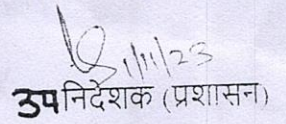 1/11/23
उपनिदेशक (प्रशासन)